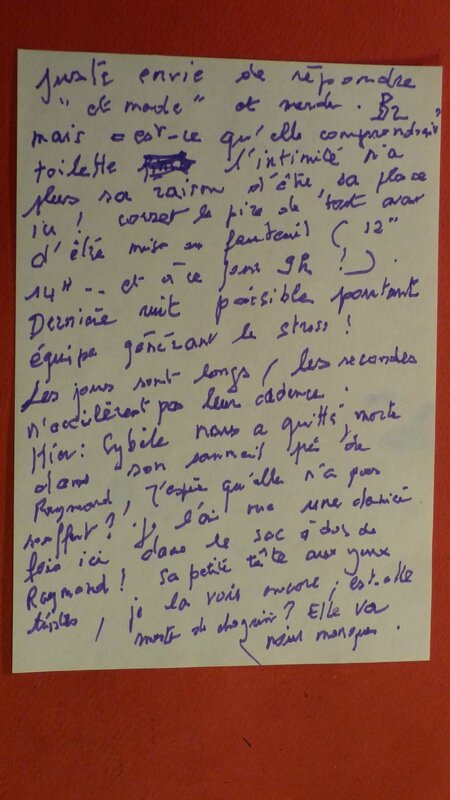 juste envie de répondre
"et merde" et merde.
mais est-ce qu'elle comprendrait"
toilette l'intimité n'a
plus sa raison d'être, sa place
ici ! corset le pire de tout avant
d'être mise au fauteuil ( 12"
14H -- et à ce jour 9h ! ).
Dernière nuit paisible pourtant
équipe générant le stress !
Les jours sont longs, les secondes
n'accélèrent pas leur cadence.
Hier : Cybèle nous a quitté, morte
dans son sommeil près de
Raymond, j'espère qu'elle n'a pas
souffert ? Je l'ai vue une dernière
fois ici dans le sac à dos de
Raymond ! Sa petite tête aux yeux
tristes, je la vois encore ; est-elle
morte de chagrin ? Elle va
nous manquer.